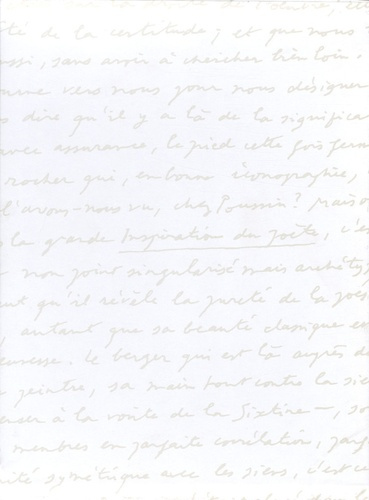 té de la certitude, et que nous
ussi, sans avoir à chercher bien loin.
vers nous pour nous désigner
dire qu'il y a là de la significa
avec assurance, le pied cette fois ferm
rocher qui, en bonne iconographie,
l'avons-nous vu, chez Poussin? Mais
la grande Inspiration du poète, c'es
non point singularisé mais archéty
qu'il révèle la pureté de la poés
, autant que sa beauté classique
eunesse. Le berger qui est là auprès de
peintre, sa main tout contre la sie
enser à la voûte de la Sixtine —, so
membres en parfaite corrélation,
ité symétrique avec les siens, c'est ce